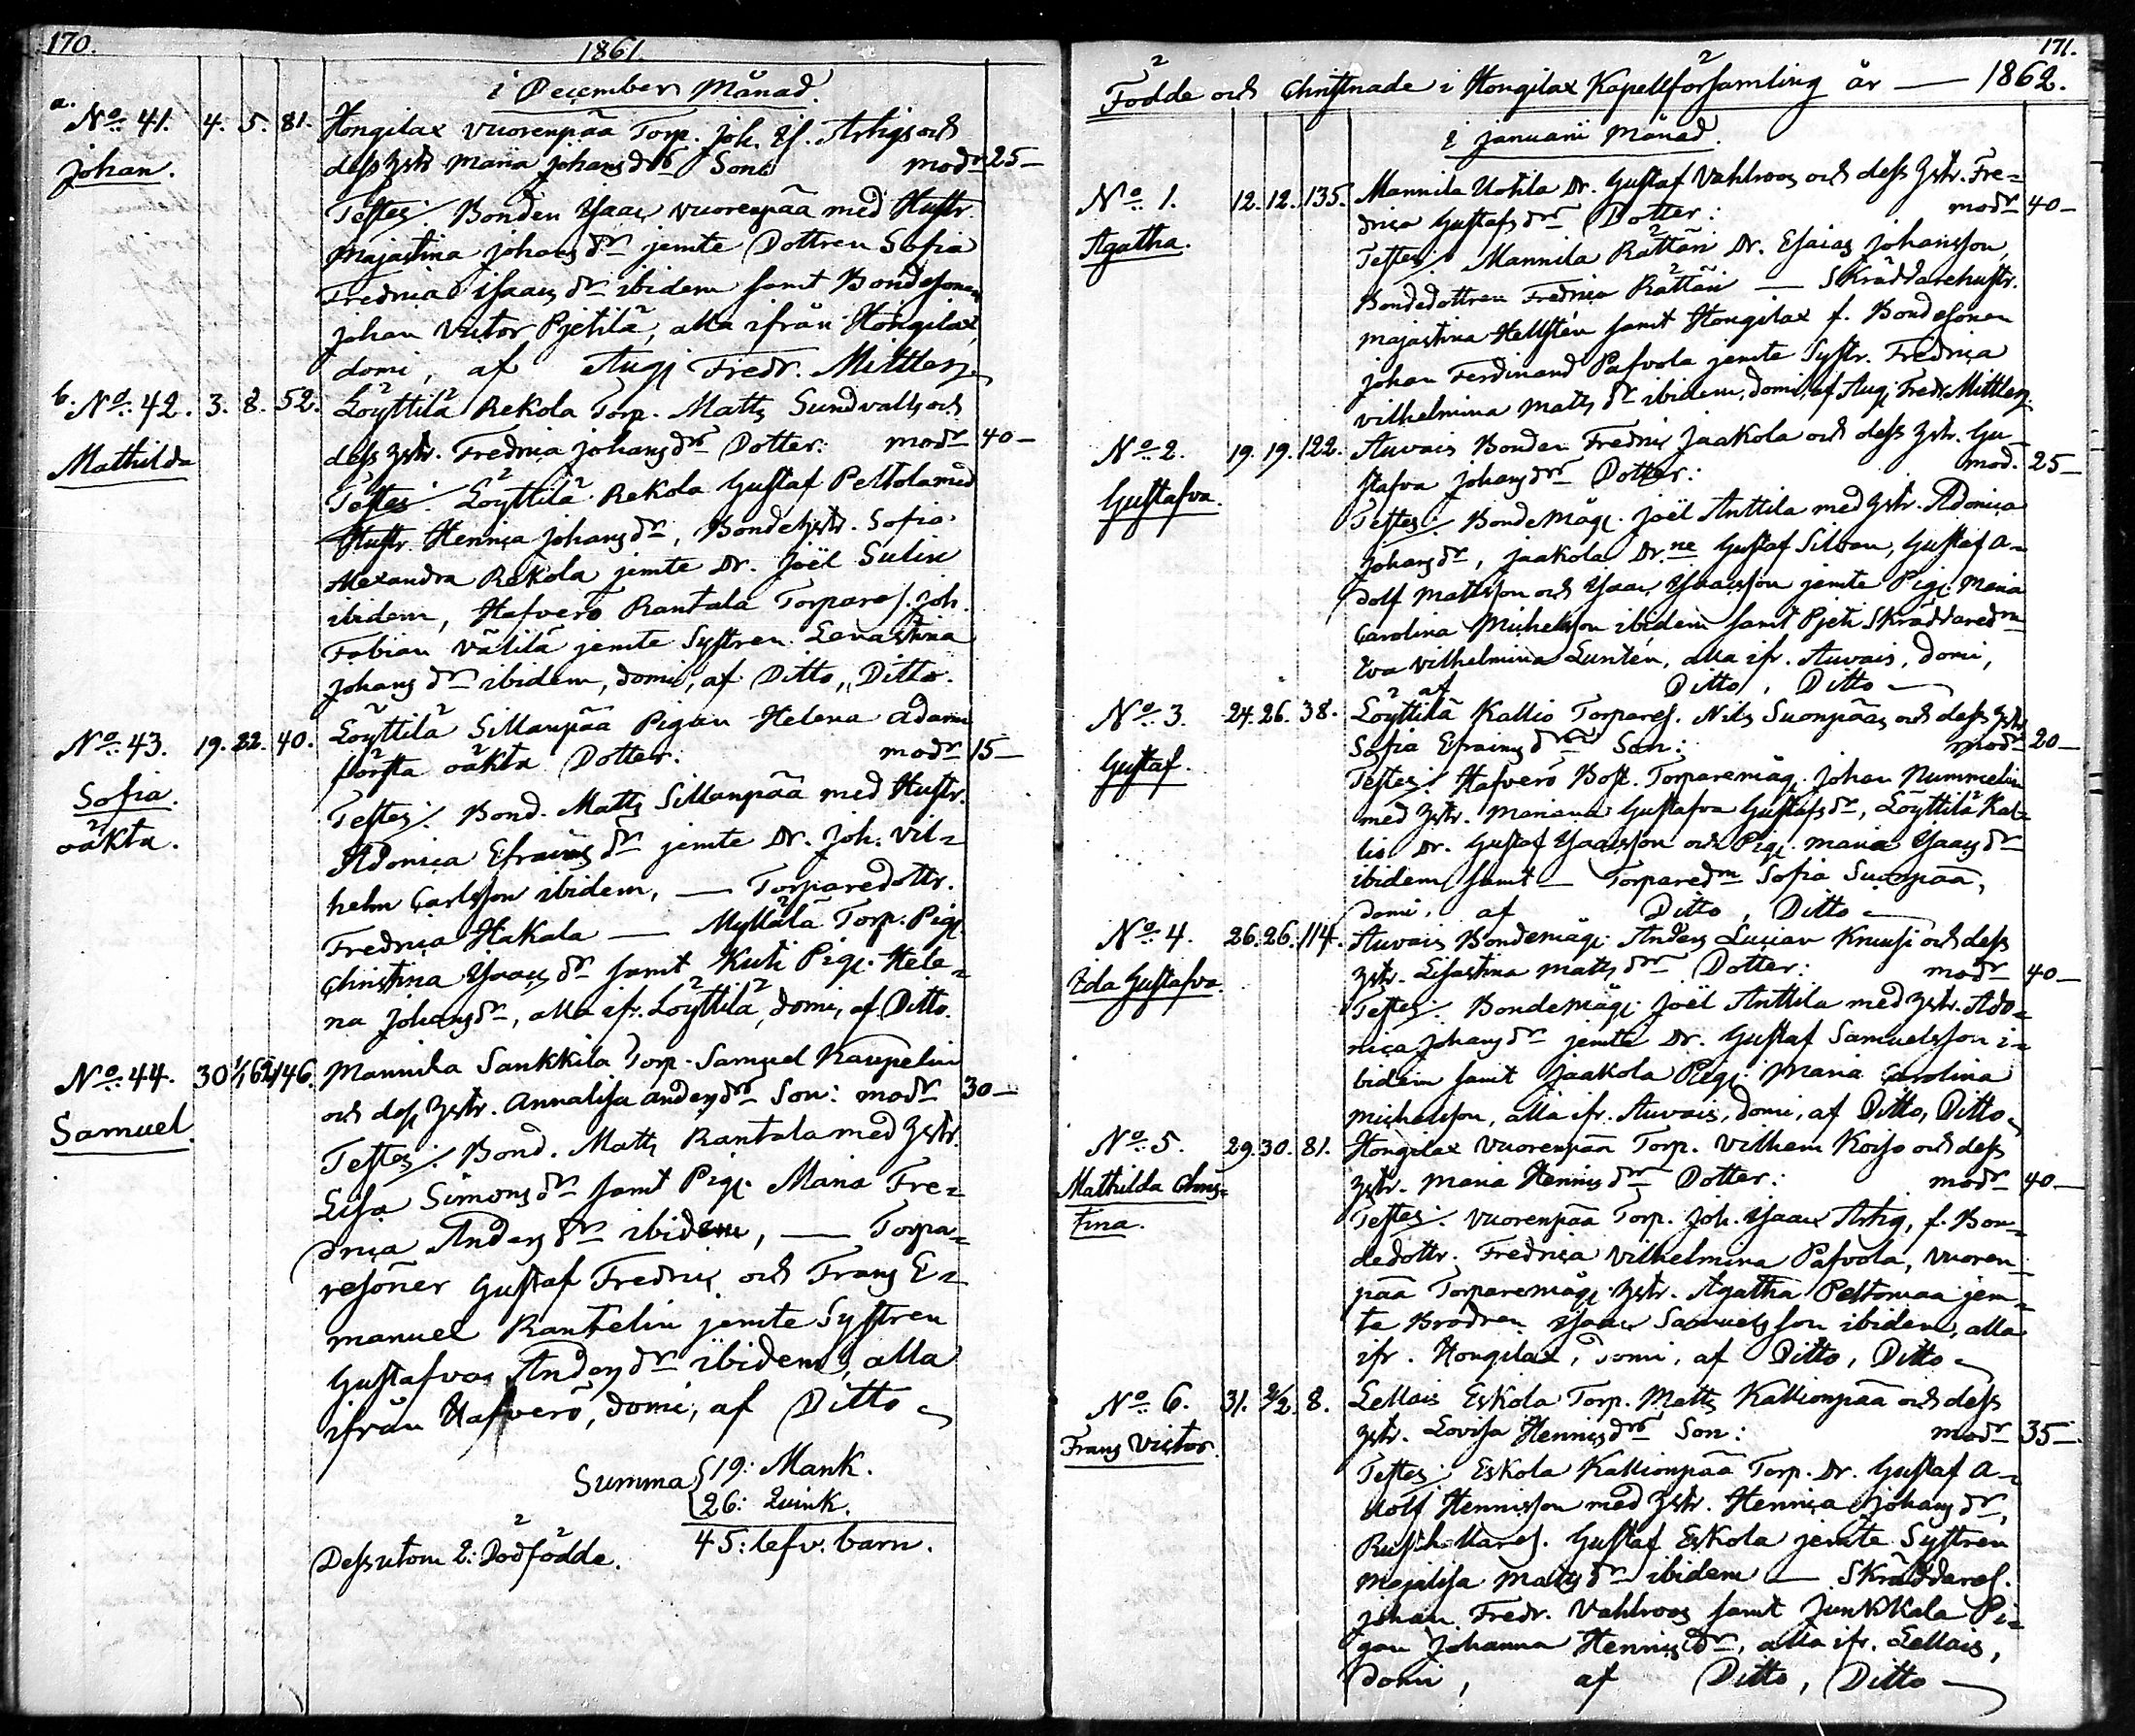 170.
1861.
i December Månad.
a. No: 41. 4. 5. 81. Hongilax Vuorenpää Torp. Joh. Is. Arhigs och
Johan. dess hstr Maria Johansdrs Son: modr 25—
Testes: Bonden Isaac Vuorenpää med Hustr.
Majastina Johansdr jemte Dottren Sofia
Fredrica Isaacsdr ibidem samt Bondesonen
Johan Victor Pjetilä, alla ifrån Hongilax,
domi, af Augt Fredr. Mittler.
b. No: 42. 3. 8. 52. Löyttilä Rekola Torp. Matts Sundvalls och
Mathilda dess hstr. Fredrica Johansdrs Dotter: modr 40—
Testes: Löyttilä Rekola Gustaf Peltola med
Hustr. Henrica Johansdr, Bondehstr. Sofia
Alexandra Rekola jemte Dr. Joël Sulin
ibidem, Hafverö Rantala Torpares. Joh.
Fabian Välilä jemte Systren Lenastina
Johansdr ibidem, domi, af Ditto, Ditto.
No: 43. 19. 22. 40. Löyttilä Sillanpää Pigan Helena Adams
Sofia. första oäkta Dotter: modr 15—
oäkta. Testes: Bond. Matts Sillanpää med Hustr.
Adonica Efraimsdr jemte Dr. Joh. Vil=
helm Carlsson ibidem, — Torparedottr.
Fredrica Hakala — Myllälä Torp. Pig.
Christina Isaacsdr samt Kuti Pig. Hele=
na Johansdr, alla ifr. Löyttilä, domi, af Ditto.
No: 44. 30 1/1 62 146. Mannila Sankkila Torp. Samuel Kaupelin
Samuel. och dess hstr. Annalisa Andersdrs Son: modr 30—
Testes: Bond. Matts Rantala med hstr.
Lisa Simonsdr samt Pig. Maria Fre=
drica Andersdr ibidem, — Torpa=
resöner Gustaf Fredric och Frans E=
manuel Rantelin jemte Systren
Gustafva Andersdr ibidem, alla
ifrån Hafverö, domi, af Ditto
Summa { 19: Mank.
26: Quink.
45: lefv: barn.
Dessutom 2: Dödfödde.
171.
Födde och Christnade i Hongilax Kapellförsamling år — 1862.
i Januarii Månad.
No: 1. 12. 12. 135. Mannila Uotila Dr. Gustaf Vahlroos och dess hstr. Fre=
Agatha. drica Gustafsdrs Dotter: modr 40—
Testes: Mannila Rättäri Dr. Esaias Johansson,
Bondedottren Fredrica Rättäri — Skräddarehustr.
Majastina Hellstén samt Hongilax f. Bondesonen
Johan Ferdinand Pafvola jemte Systr. Fredrica
Vilhelmina Mattsdr ibidem, domi, af Augt Fredr. Mittler.
No: 2. 19. 19. 122. Auvais Bonden Fredric Jaakola och dess hstr. Gu=
Gustafva. stafva Johansdrs Dotter: mod. 25—
Testes: Bondemåg. Joël Anttila med hstr. Adonica
Johansdr, Jaakola Dr.ne Gustaf Silvan, Gustaf A=
dolf Mattsson och Isaac Isaacsson jemte Pig. Maria
Carolina Michelsson ibidem samt Pjeti Skräddaredr
Eva Vilhelmina Luntén, alla ifr. Auvais, domi,
af Ditto, Ditto
No: 3. 24. 26. 38. Löyttilä Kallio Torpares. Nils Suonpääs och dess hstr
Gustaf. Sofia Efraimsdrs Son: modr 20—
Testes: Hafverö Bost. Torparemåg. Johan Nummelin
med hstr. Mariana Gustafva Gustafsdr, Löyttilä Kal=
lio Dr. Gustaf Isaacsson och Pig. Maria Isaacsdr
ibidem samt — Torparedm Sofia Suonpää,
domi, af Ditto, Ditto
No: 4. 26. 26. 114. Auvais Bondemåg. Anders Lucian Knuusi och dess
Ida Gustafva. hstr. Lisastina Mattsdrs Dotter: modr 40—
Testes: Bondemåg. Joël Anttila med hstr. Ado=
nica Johansdr jemte Dr. Gustaf Samuelsson i=
bidem samt Jaakola Pig. Maria Carolina
Michelsson, alla ifr. Auvais, domi, af Ditto, Ditto
No: 5. 29. 30. 81. Hongilax Vuorenpää Torp. Vilhem Koiso och dess
Mathilda Chris= hstr. Maria Henricsdrs Dotter: modr 40—
tina. Testes: Vuorenpää Torp. Joh. Isaac Arhig, f. Bon=
dedottr. Fredrica Vilhelmina Pafvola, Vuoren=
pää Torparemåg. hstr. Agatha Peltomaa jem=
te Brodren Isaac Samuelsson ibidem, alla
ifr. Hongilax, domi, af Ditto, Ditto
No: 6. 31. 2/2. 8. Lellais Eskola Torp. Matts Kallionpää och dess
Frans Victor. hstr. Lovisa Henricsdrs Son: modr 35—
Testes: Eskola Kallionpää Torp. Dr. Gustaf A=
dolf Henricsson med hstr. Henrica Johansdr,
Rusthållares. Gustaf Eskola jemte Systren
Majalisa Mattsdr ibidem — Skräddares.
Johan Fredr. Vahlroos samt Junkkala Pi=
gan Johanna Henricsdr, alla ifr. Lellais,
domi, af Ditto, Ditto